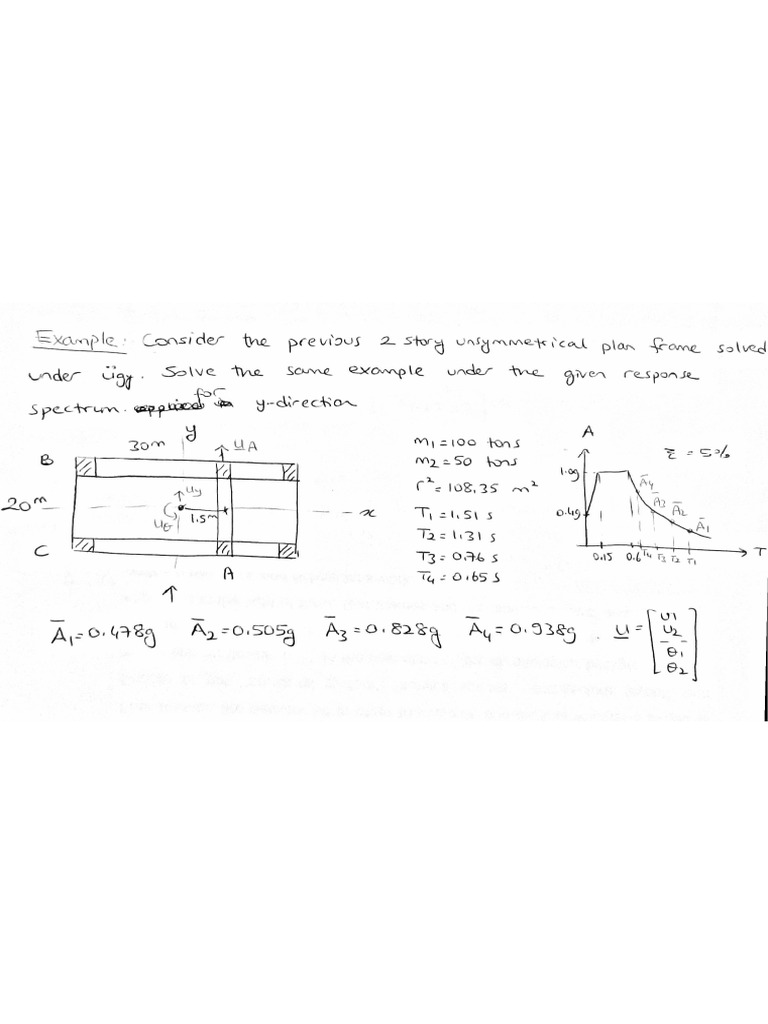 Example: Consider the previous 2 story unsymmetrical plan frame solved
under ügy. Solve the same example under the given response
spectrum for y-direction
y
30m
uA
B
20m
uy
uθ
1.5m
x
C
A
m1=100 tons
m2=50 tons
r²=108,35 m²
T1=1.51 s
T2=1.31 s
T3=0.76 s
T4=0.65 s
A
ξ=5%
1.0g
0.4g
Ā4
Ā3
Ā2
Ā1
0.15 0.6 T4 T3 T2 T1
T
Ā1=0.478g Ā2=0.505g Ā3=0.828g Ā4=0.938g. u=[u1
u2
θ1
θ2]